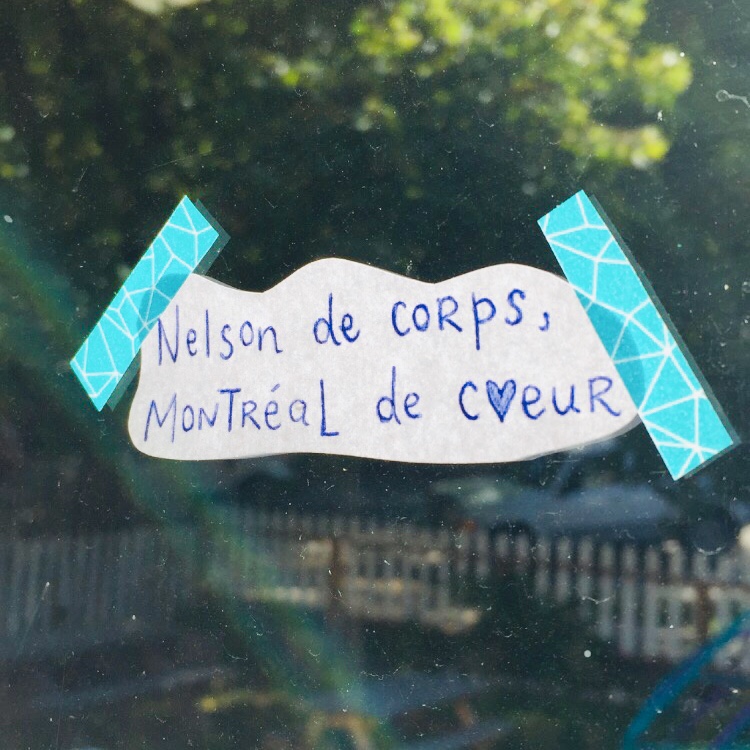 Nelson de corps,
Montréal de c♥eur